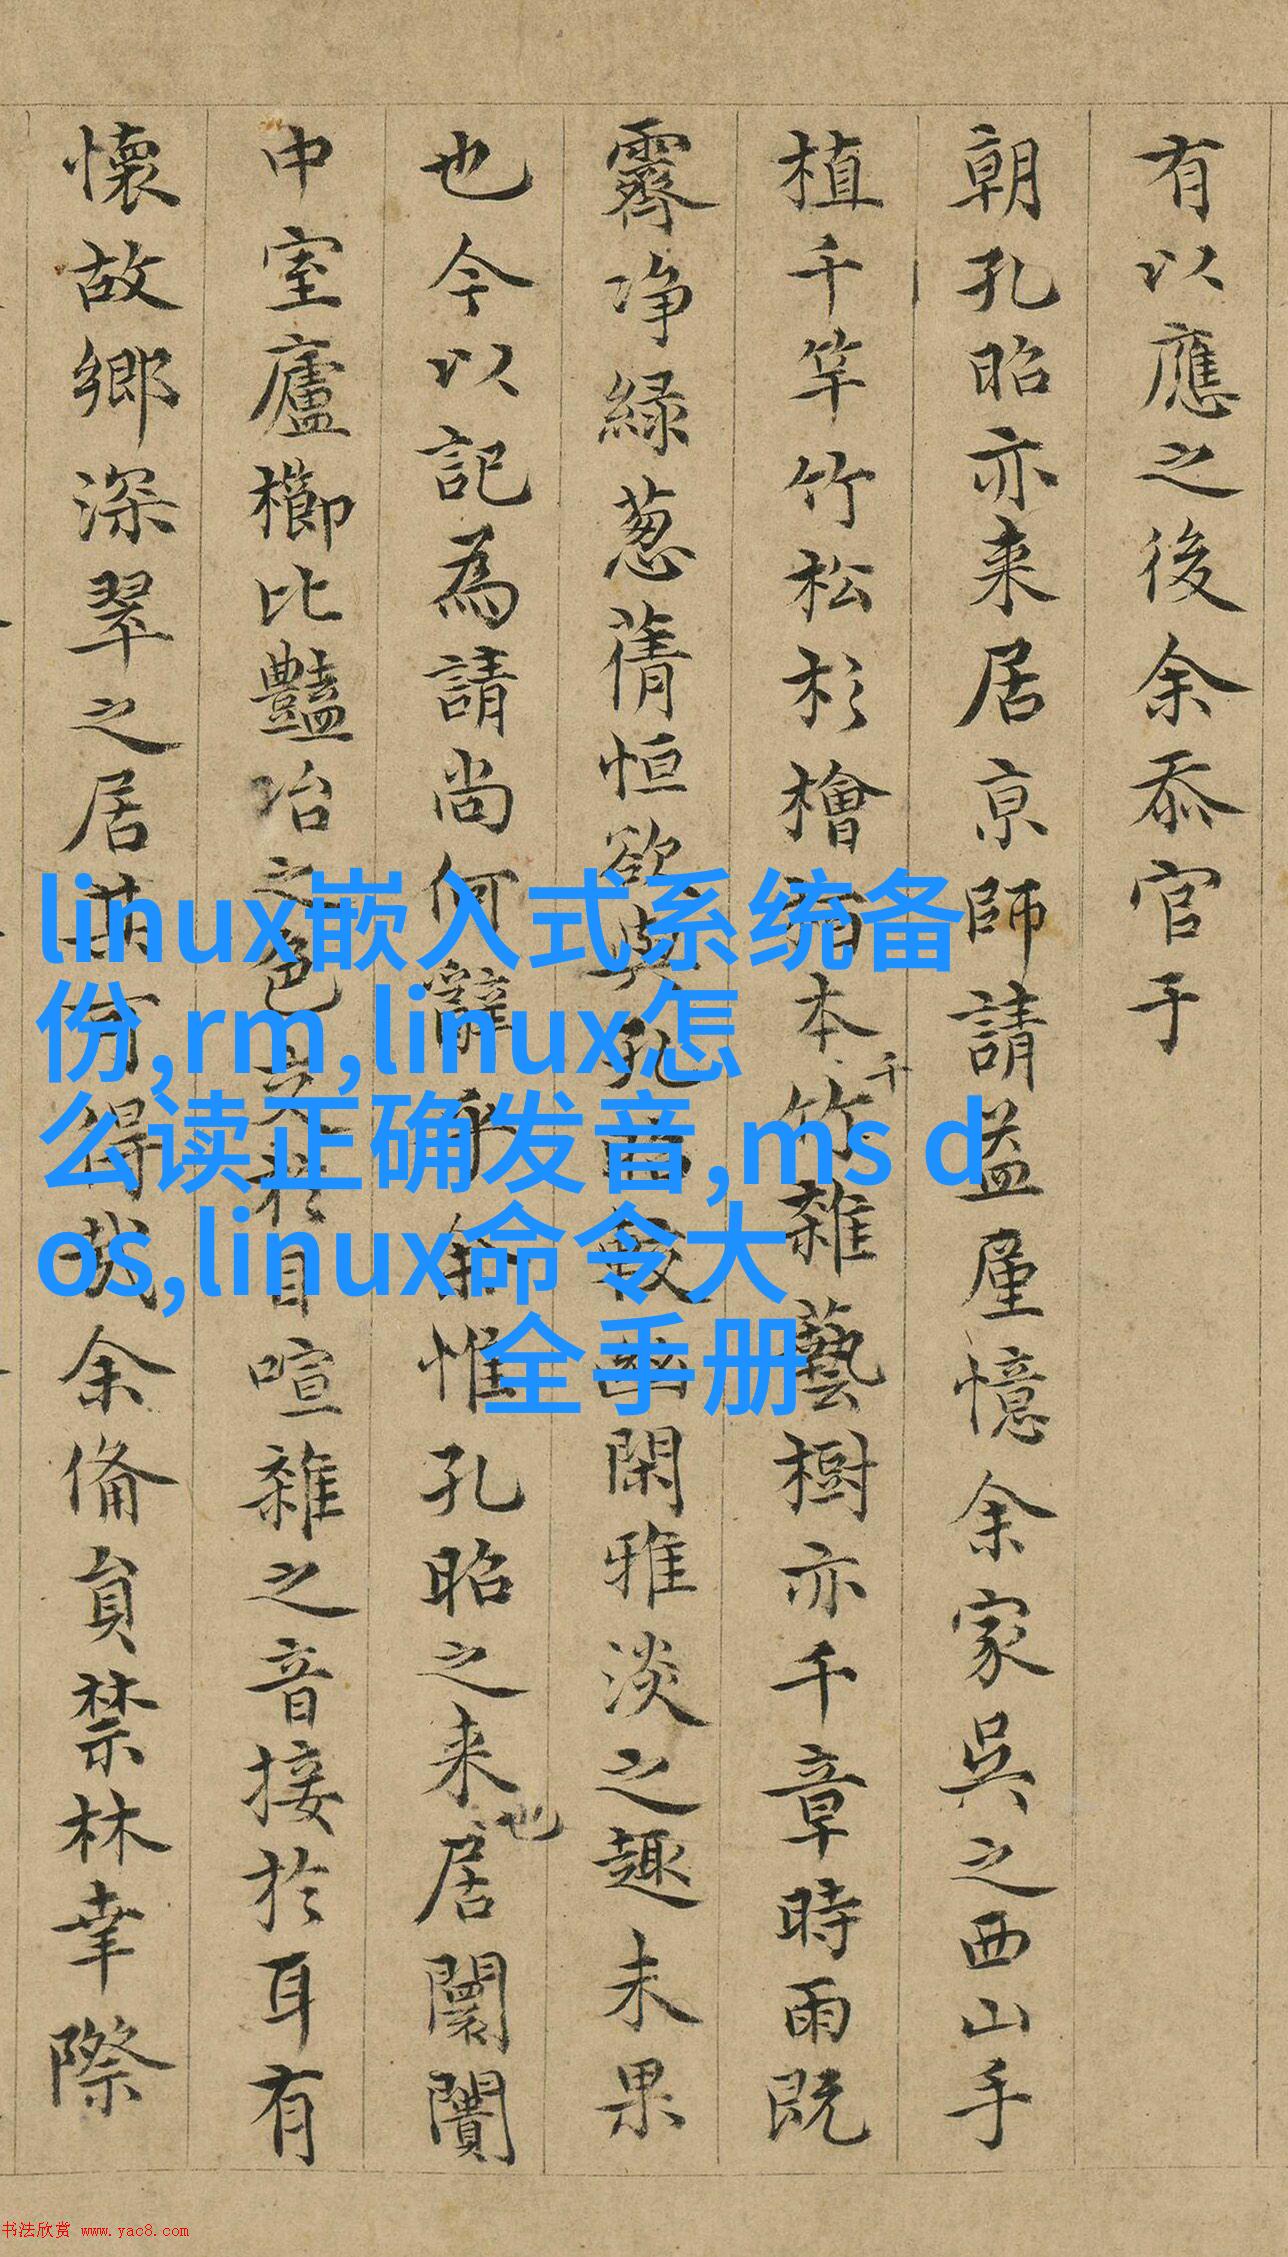 有以應之後余忝官于
朝孔昭亦来居京師請益厪憶余家吳之西山手
植千竿竹松杉檜本千竹雜藝樹亦千章時雨既
霽净緑葱蒨恒欲與孔閑雅淡之趣未果
也今以記為請尚何辭乎余惟孔昭之来也居闤闠
中室廬櫛比豔冶之色交於目喧雜之音接於耳有
懷故鄉深翠之居可得哉余備員禁林幸際
linux嵌入式系统备
份,rm,linux怎
么读正确发音,ms d
os,linux命令大
全手册
书法欣赏 www.yac8.com